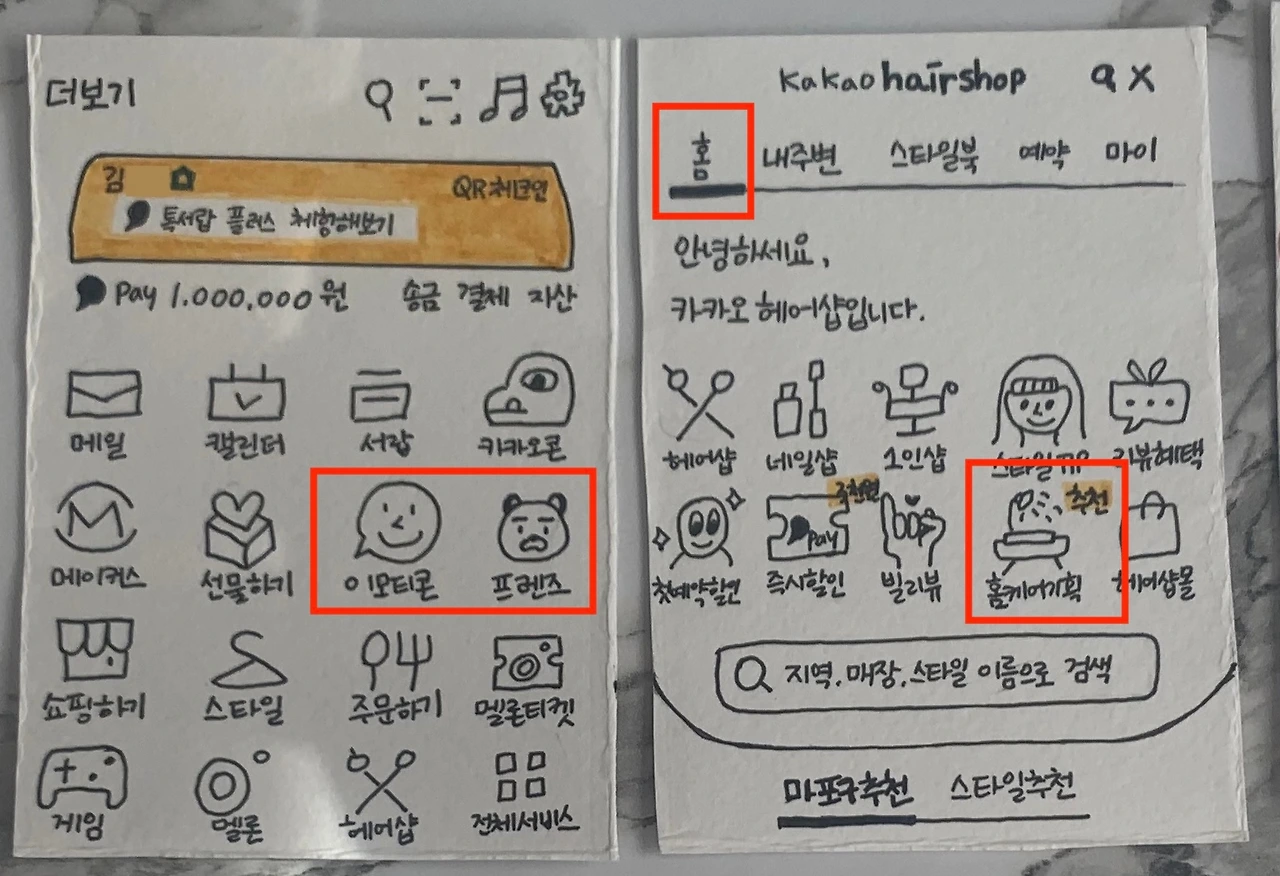 더보기
김
QR체크인
톡서랍 플러스 체험해보기
Pay 1.000,000원 송금 결제 자산
메일 캘린더 서랍 카카오콘
메이커스 선물하기 이모티콘 프렌즈
쇼핑하기 스타일 주문하기 멜론티켓
게임 멜론 헤어샵 전체서비스
kakao hairshop
홈 내주변 스타일북 예약 마이
안녕하세요,
카카오 헤어샵입니다.
헤어샵 네일샵 1인샵 리뷰혜택
Pay
추천
첫예약할인 즉시할인 빌리뷰 홈케어기획 헤어샵몰
지역.매장.스타일 이름으로 검색
마포구추천 스타일추천